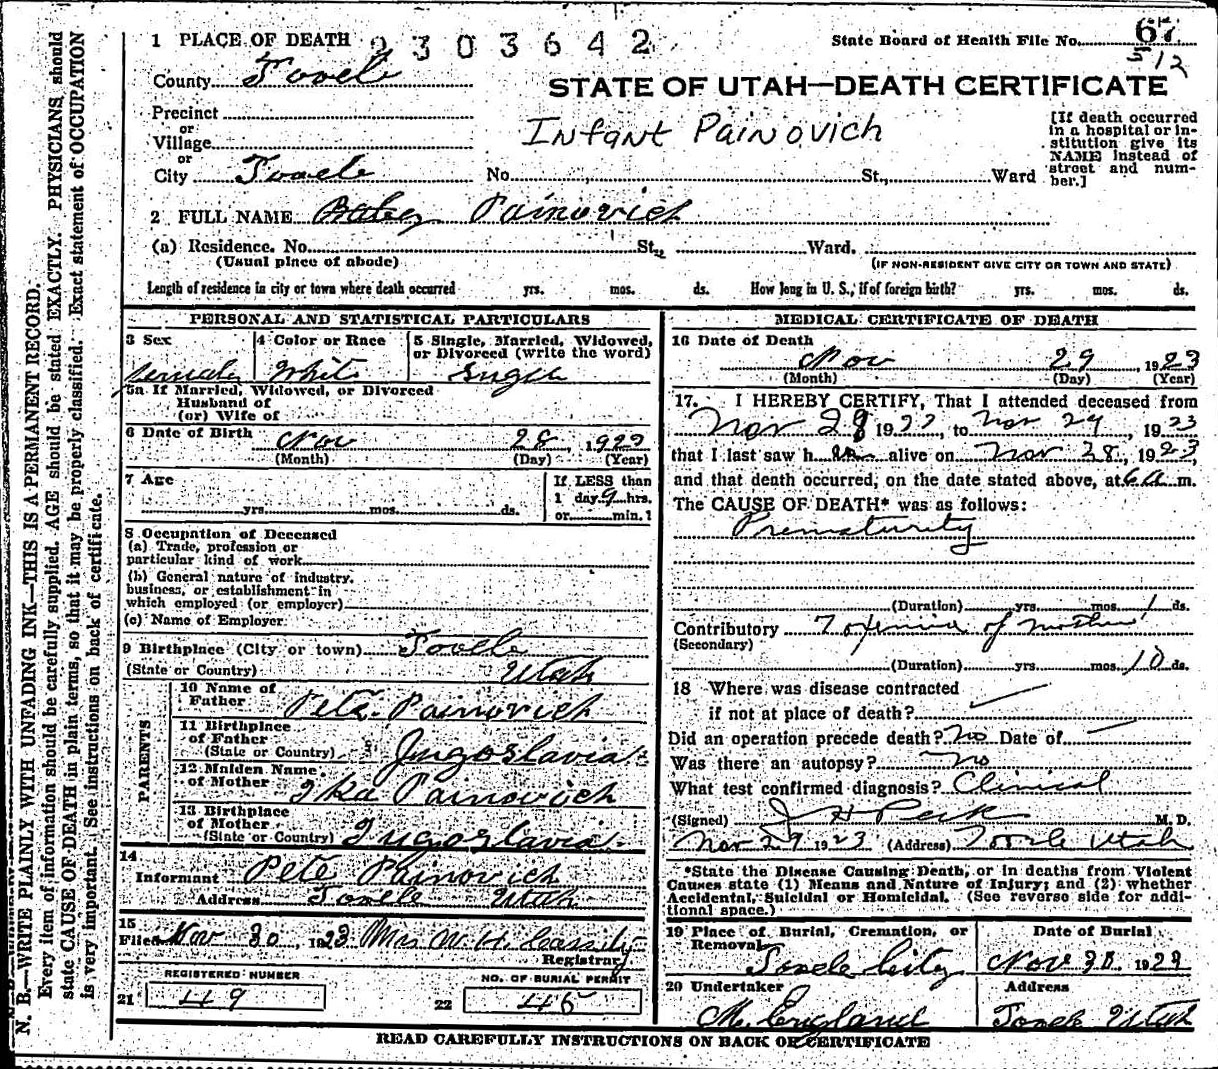 1 PLACE OF DEATH 2303642
State Board of Health File No. 67
512
County Tooele
STATE OF UTAH—DEATH CERTIFICATE
Precinct
or
Village
or
City Tooele No. St., Ward
Infant Painovich
[If death occurred
in a hospital or in-
stitution give its
NAME instead of
street and num-
ber.]
2 FULL NAME Baby Painovich
(a) Residence. No. St., Ward.
(Usual place of abode) (IF NON-RESIDENT GIVE CITY OR TOWN AND STATE)
Length of residence in city or town where death occurred yrs. mos. ds. How long in U. S., if of foreign birth? yrs. mos. ds.
PERSONAL AND STATISTICAL PARTICULARS
3 Sex 4 Color or Race 5 Single, Married, Widowed,
or Divorced (write the word)
Female White Single
5a If Married, Widowed, or Divorced
Husband of
(or) Wife of
6 Date of Birth Nov 28, 1923
(Month) (Day) (Year)
7 Age If LESS than
1 day 9 hrs.
yrs. mos. ds. or min.?
8 Occupation of Deceased
(a) Trade, profession or
particular kind of work
(b) General nature of industry,
business, or establishment in
which employed (or employer)
(c) Name of Employer
9 Birthplace (City or town) Tooele
(State or Country) Utah
PARENTS
10 Name of
Father Pete Painovich
11 Birthplace
of Father
(State or Country) Jugoslavia
12 Maiden Name
of Mother Ika Painovich
13 Birthplace
of Mother
(State or Country) Jugoslavia
14
Informant Pete Painovich
Address Tooele Utah
15
Filed Nov 30, 1923 Mrs W. H. Cassity
Registrar
REGISTERED NUMBER NO. OF BURIAL PERMIT
21 49 22 45
MEDICAL CERTIFICATE OF DEATH
16 Date of Death
Nov 29, 1923
(Month) (Day) (Year)
17. I HEREBY CERTIFY, That I attended deceased from
Nov 28 1923, to Nov 29, 1923
that I last saw h er alive on Nov 28, 1923,
and that death occurred, on the date stated above, at 6 a. m.
The CAUSE OF DEATH* was as follows:
Prematurity
(Duration) yrs. mos. 1 ds.
Contributory Toxemia of mother
(Secondary)
(Duration) yrs. mos. 10 ds.
18 Where was disease contracted
if not at place of death?
Did an operation precede death? No Date of
Was there an autopsy? No
What test confirmed diagnosis? Clinical
(Signed) J H Peck M. D.
Nov 29 1923 (Address) Tooele Utah
*State the Disease Causing Death, or in deaths from Violent
Causes state (1) Means and Nature of Injury; and (2) whether
Accidental, Suicidal or Homicidal. (See reverse side for addi-
tional space.)
19 Place of Burial, Cremation, or
Removal Date of Burial
Tooele City Nov 30 1923
20 Undertaker Address
M. England Tooele Utah
READ CAREFULLY INSTRUCTIONS ON BACK OF CERTIFICATE
N. B.—WRITE PLAINLY WITH UNFADING INK—THIS IS A PERMANENT RECORD.
Every item of information should be carefully supplied. AGE should be stated EXACTLY. PHYSICIANS should
state CAUSE OF DEATH in plain terms, so that it may be properly classified. Exact statement of OCCUPATION
is very important. See instructions on back of certificate.